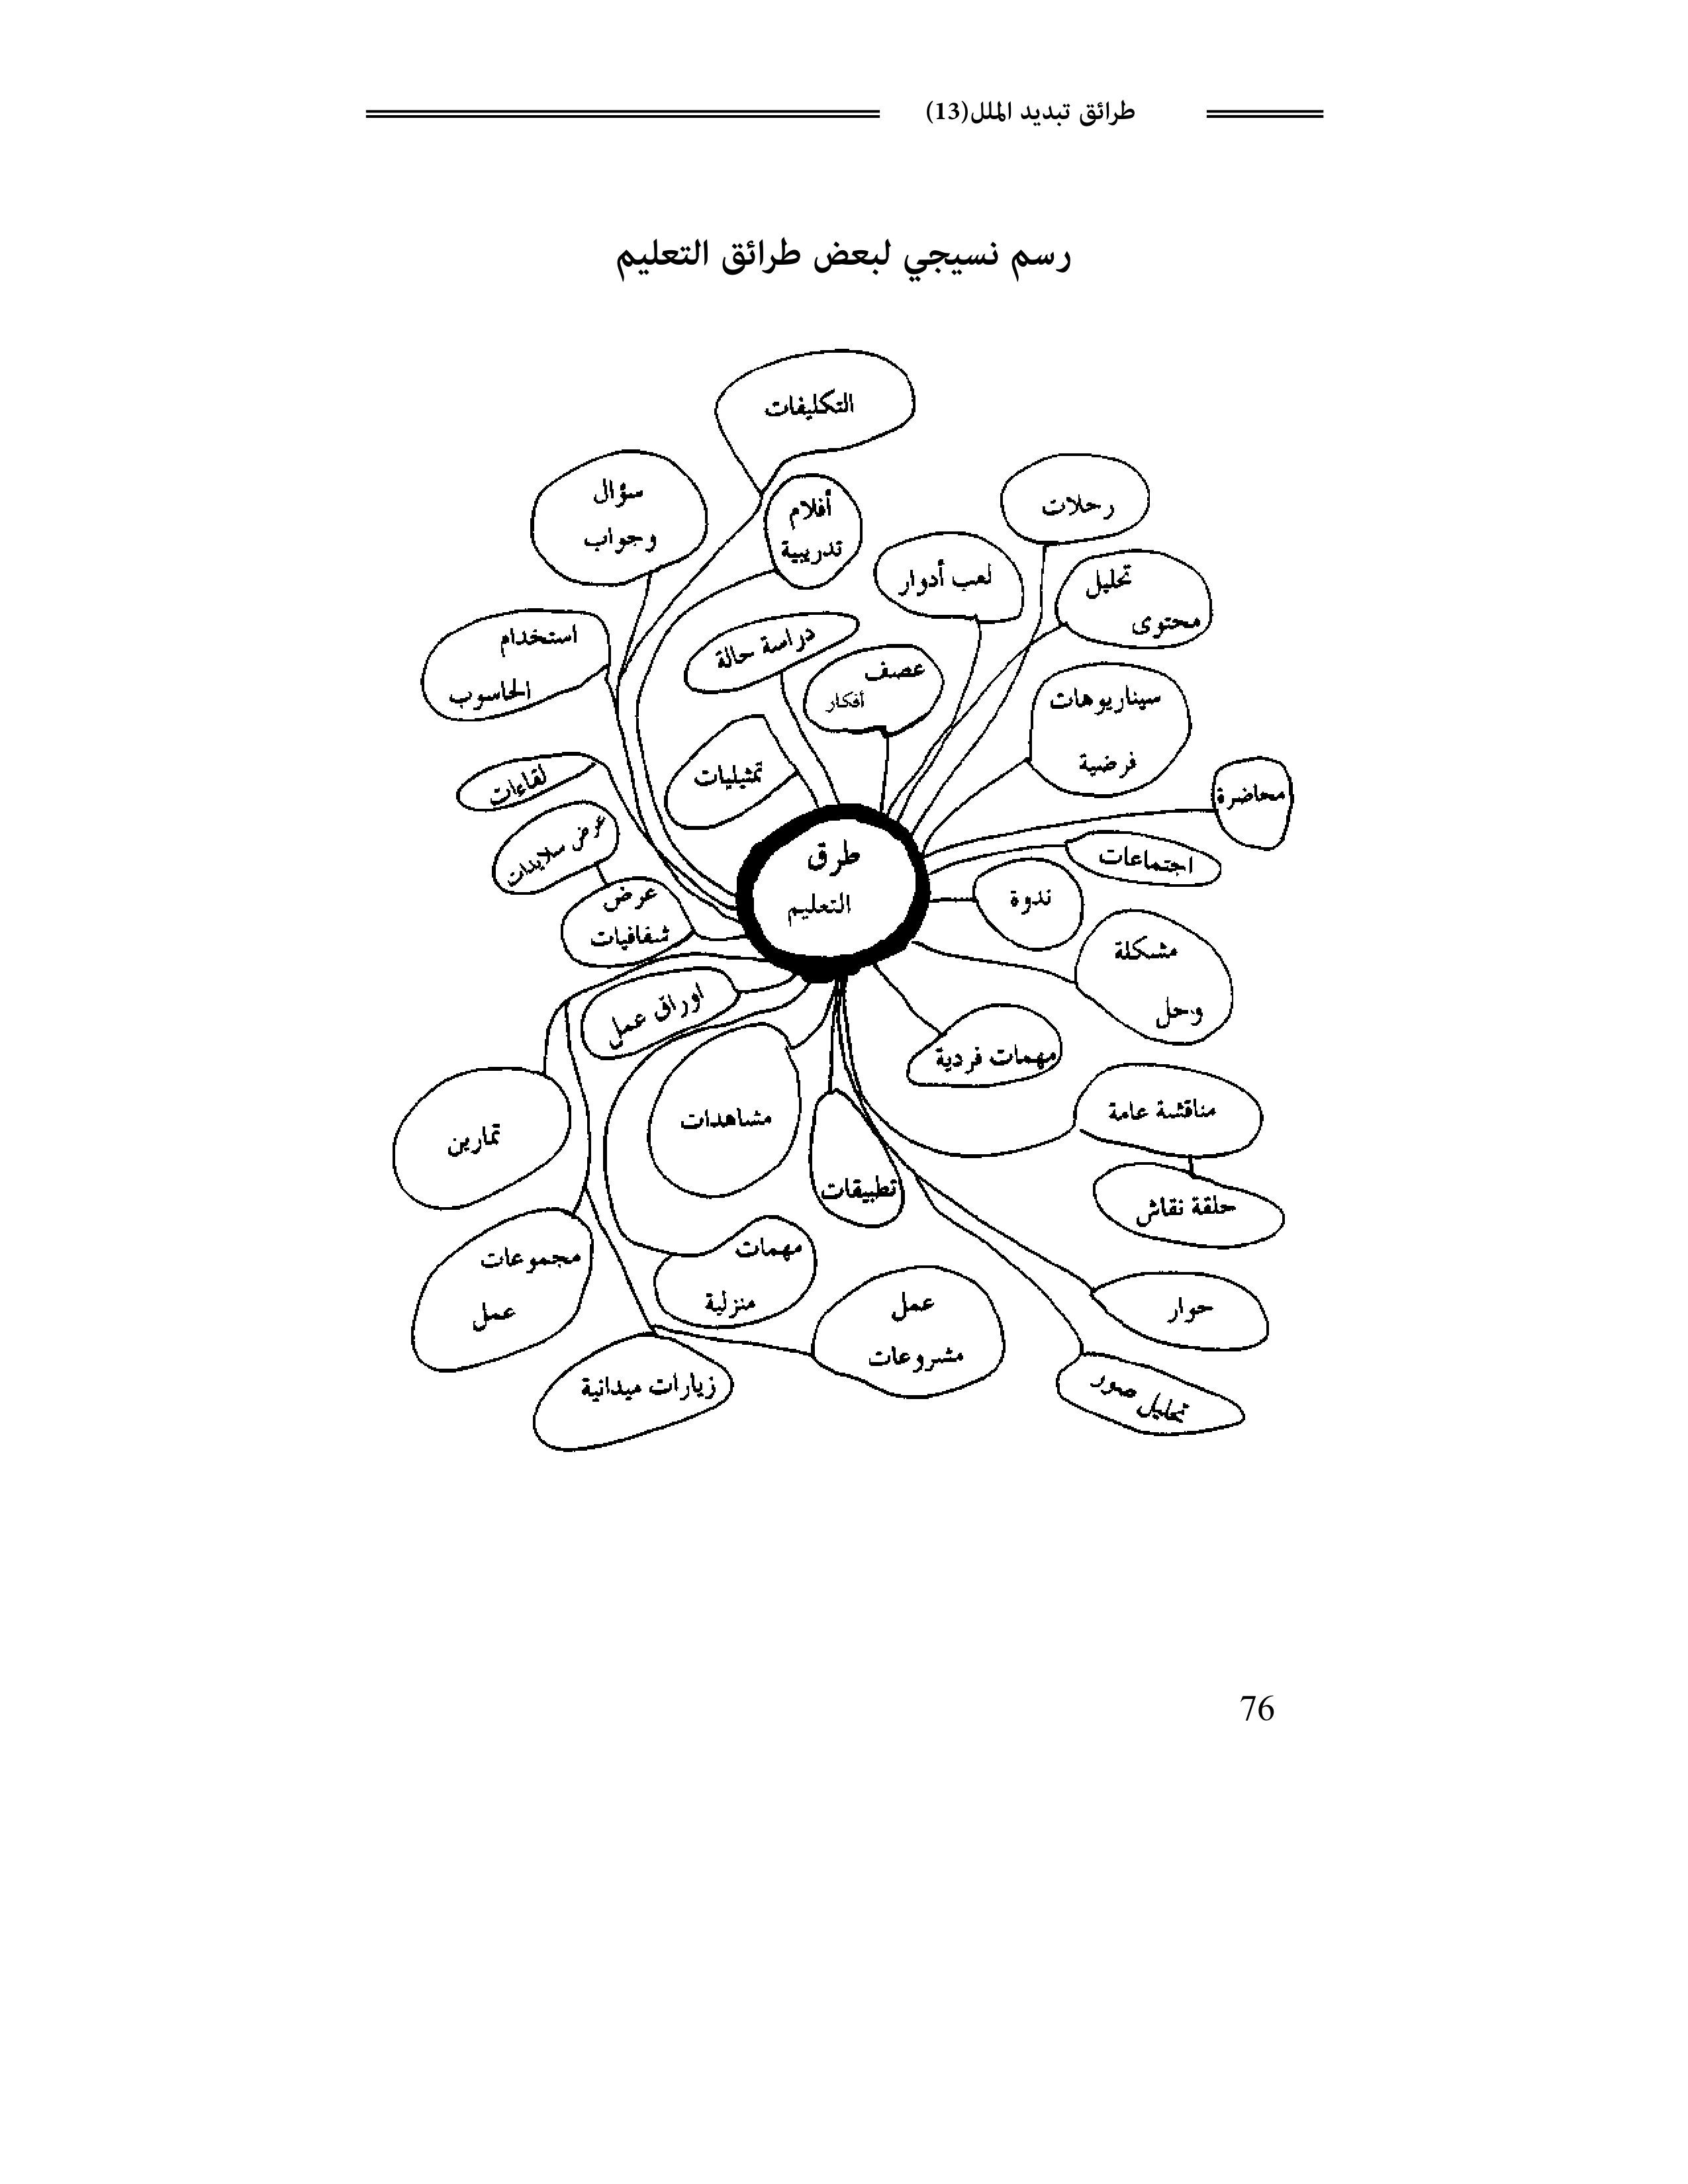 طرائق تبديد الملل(13)
رسم نسيجي لبعض طرائق التعليم
التكليفات
سؤال
وجواب
أفلام
تدريبية
رحلات
لعب أدوار
تحليل
محتوى
استخدام
الحاسوب
دراسة حالة
عصف
أفكار
سيناريوهات
فرضية
تمثيليات
لقاءات
محاضرة
عرض سلايدات
اجتماعات
طرق
التعليم
عرض
شفافيات
ندوة
مشكلة
وحل
اوراق عمل
مهمات فردية
مشاهدات
مناقشة عامة
تمارين
تطبيقات
حلقة نقاش
مجموعات
عمل
مهمات
منزلية
عمل
مشروعات
حوار
زيارات ميدانية
تحليل صور
76